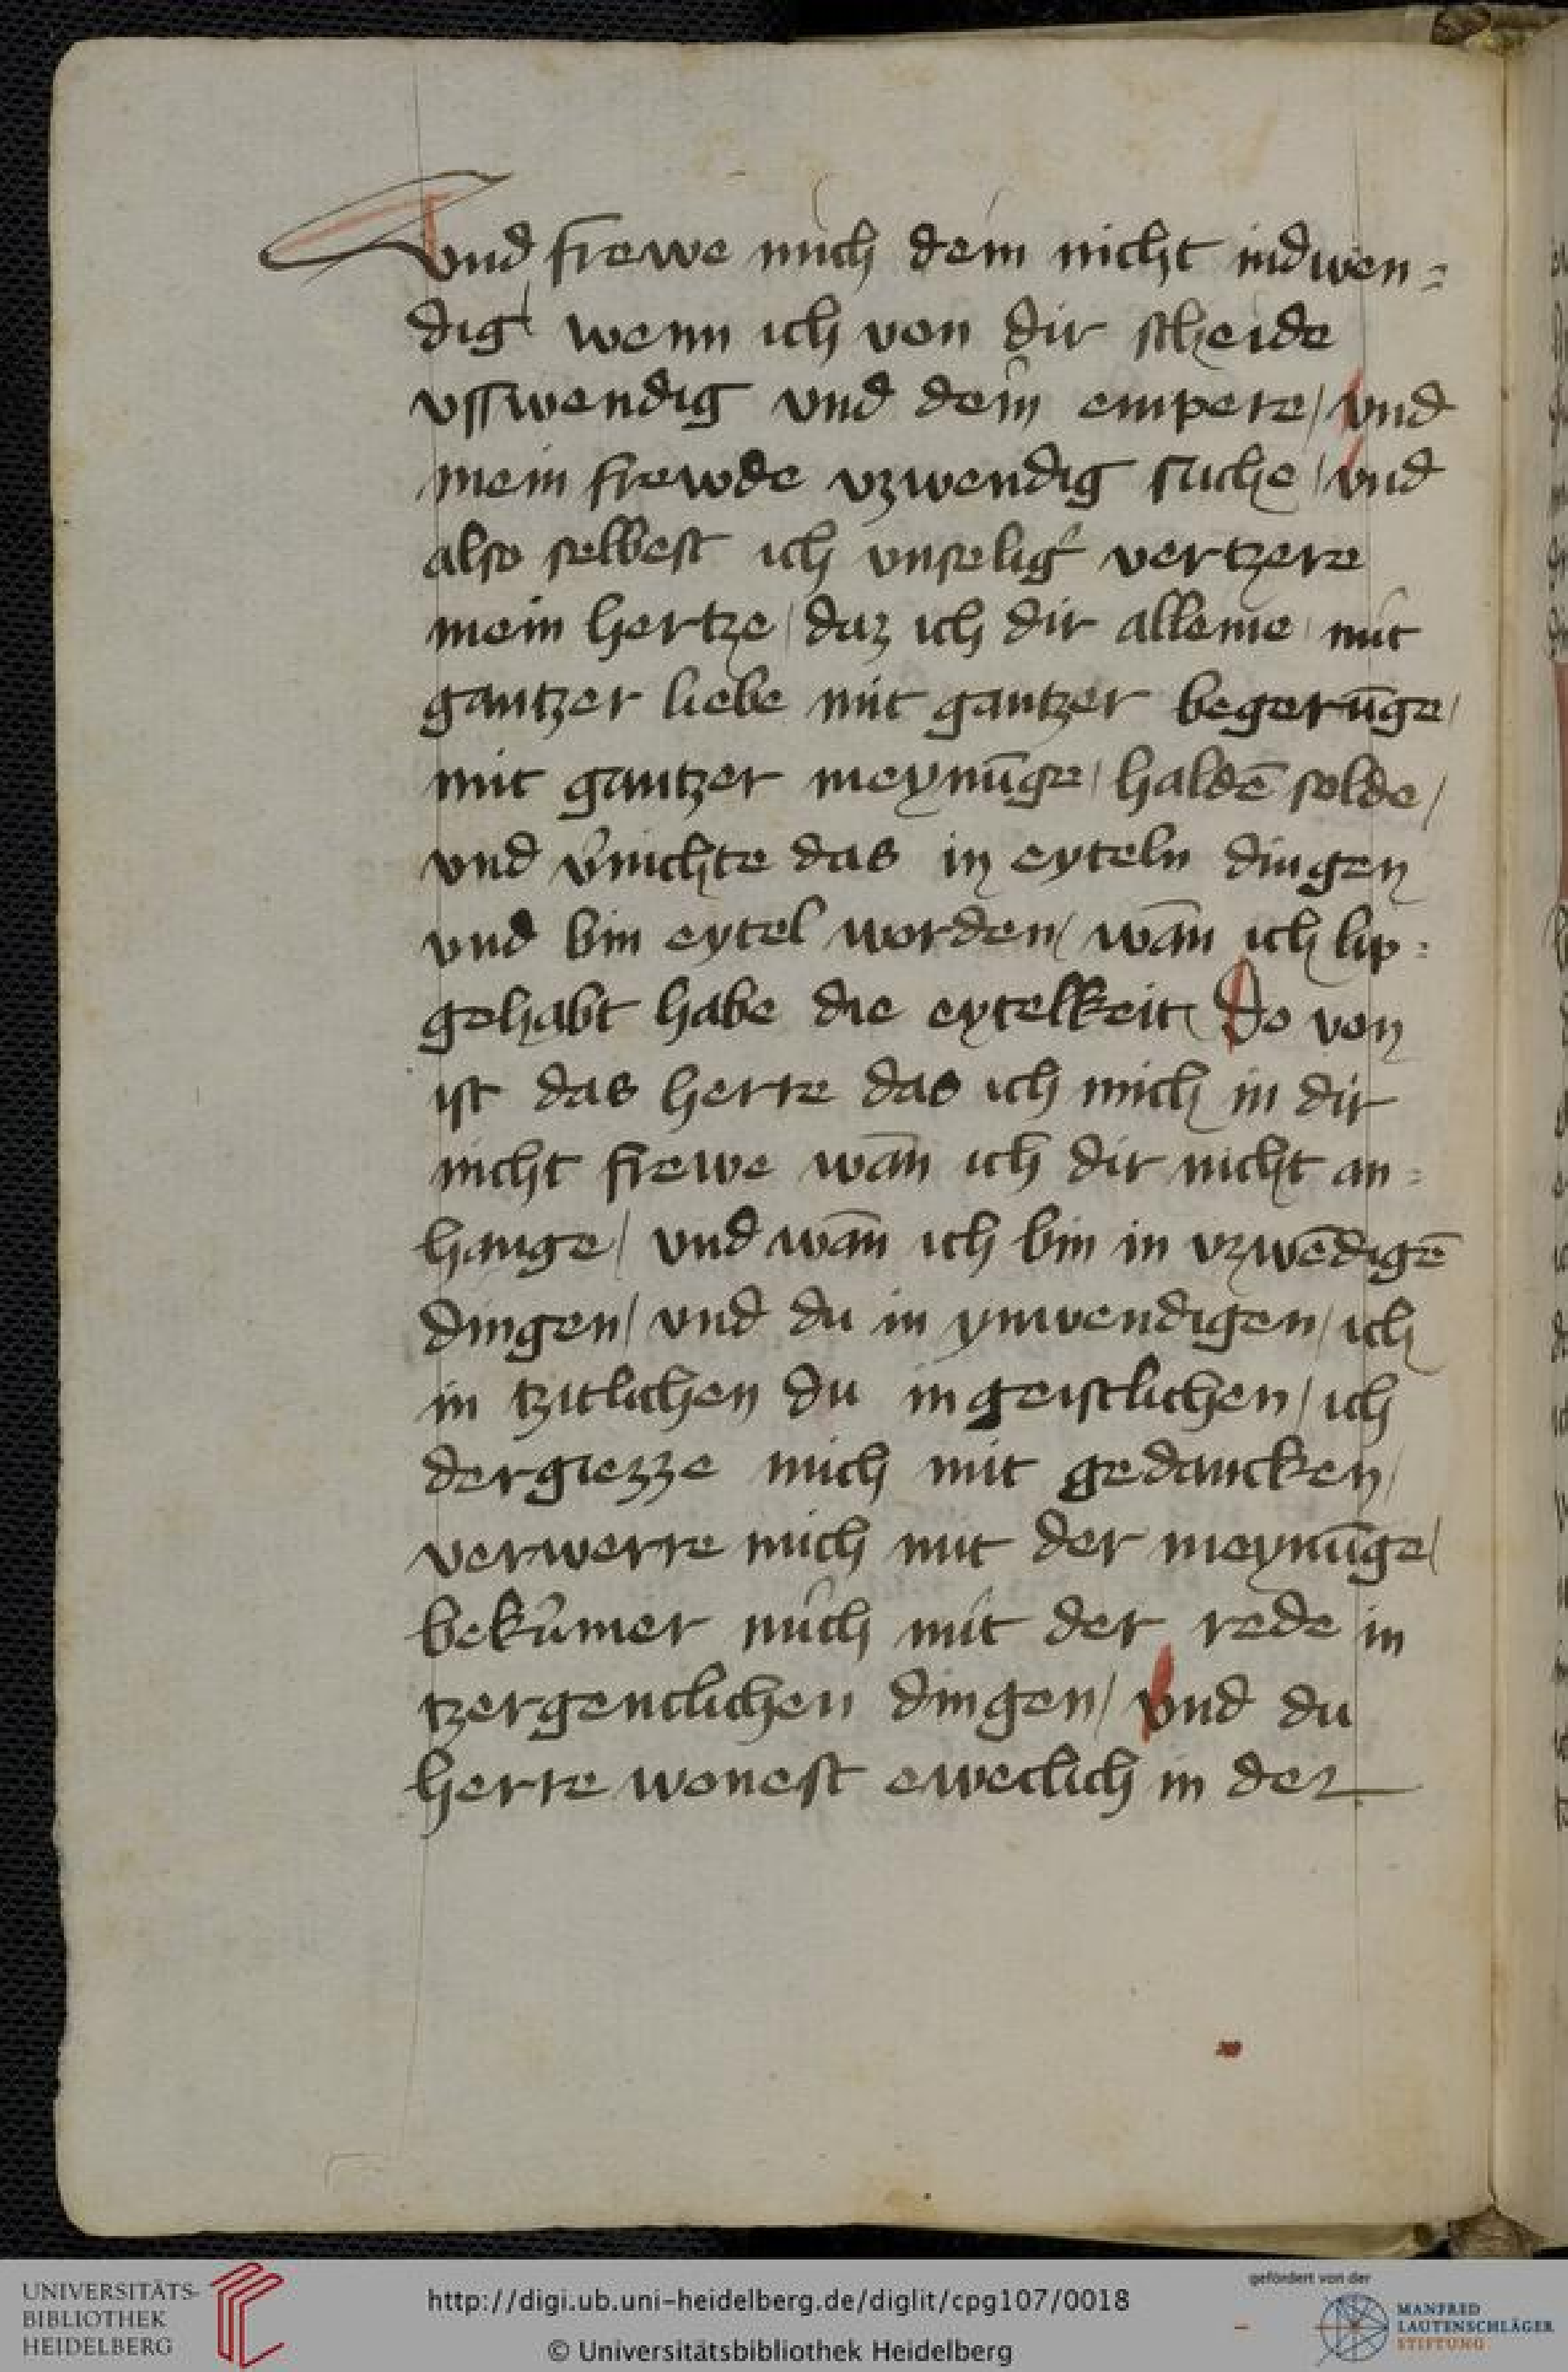 Vnd frewe mich dein nicht indwen=
dig wenn ich von dir scheide
vsswendig vnd dein empere / vnd
mein frewde vzwendig suche / vnd
also selbest ich vnselig' vertzere
mein hertze / daz ich dir alleine mit
gantzer liebe mit gantzer begerūge /
mit gantzer meynūge / haldē solde /
vnd v'nichte das in eyteln dingen
vnd bin eytel worden / wān ich lip=
gehabt habe die eytelkeit / Do von
ist das herre das ich mich in dir
nicht frewe wān ich dir nicht an=
hange / vnd wān ich bin in vzwēdigē
dingen / vnd du in ynwendigen / ich
in tzitlichen du in geistlichen / ich
dergiezze mich mit gedancken /
verwerre mich mit der meynūge /
bekūmer mich mit der rede in
tzergenclichen dingen / vnd du
herre wonest eweclich in der
UNIVERSITÄTS-
BIBLIOTHEK
HEIDELBERG
http://digi.ub.uni-heidelberg.de/diglit/cpg107/0018
© Universitätsbibliothek Heidelberg
gefördert von der
MANFRED
LAUTENSCHLÄGER
STIFTUNG